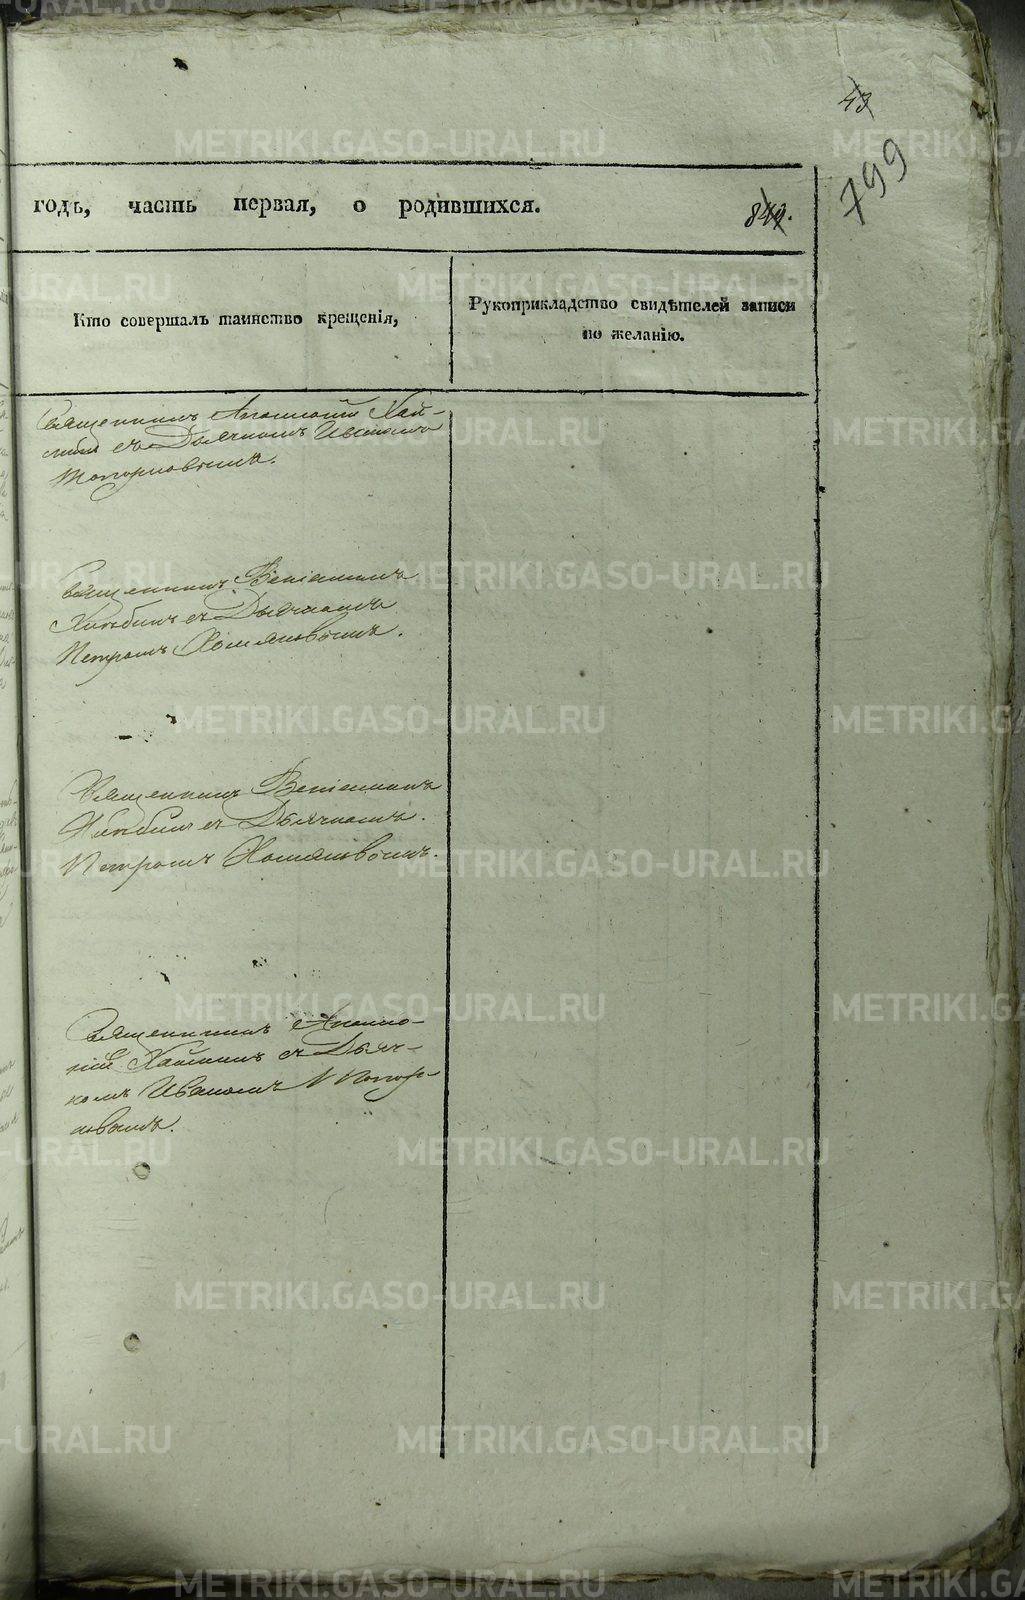 43
799
годъ, часть первая, о родившихся.
849.
Кто совершалъ таинство крещенія,
Рукоприкладство свидѣтелей записи
по желанію.
Священникъ Аполлоній Хай-
съ Дьячкомъ Иваномъ
Топорковымъ.
Священникъ Веніаминъ
съ Дьячкомъ
Петромъ Хомяковымъ.
Священникъ Веніаминъ
съ Дьячкомъ.
Петромъ Хомяковымъ.
Священникъ Аполло-
ній съ Дьяч-
комъ Иваномъ Топор-
ковымъ.
METRIKI.GASO-URAL.RU